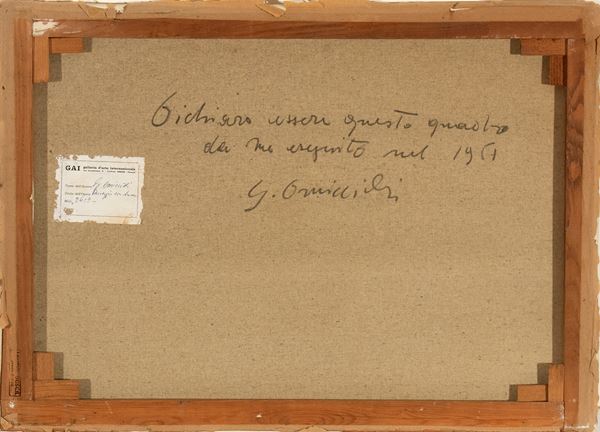 Dichiaro essere questo quadro
da me eseguito nel 1961
G. Omiccioli
GAI galleria d'arte internazionale
Nome dell'Autore G. Omiccioli
Titolo dell'Opera